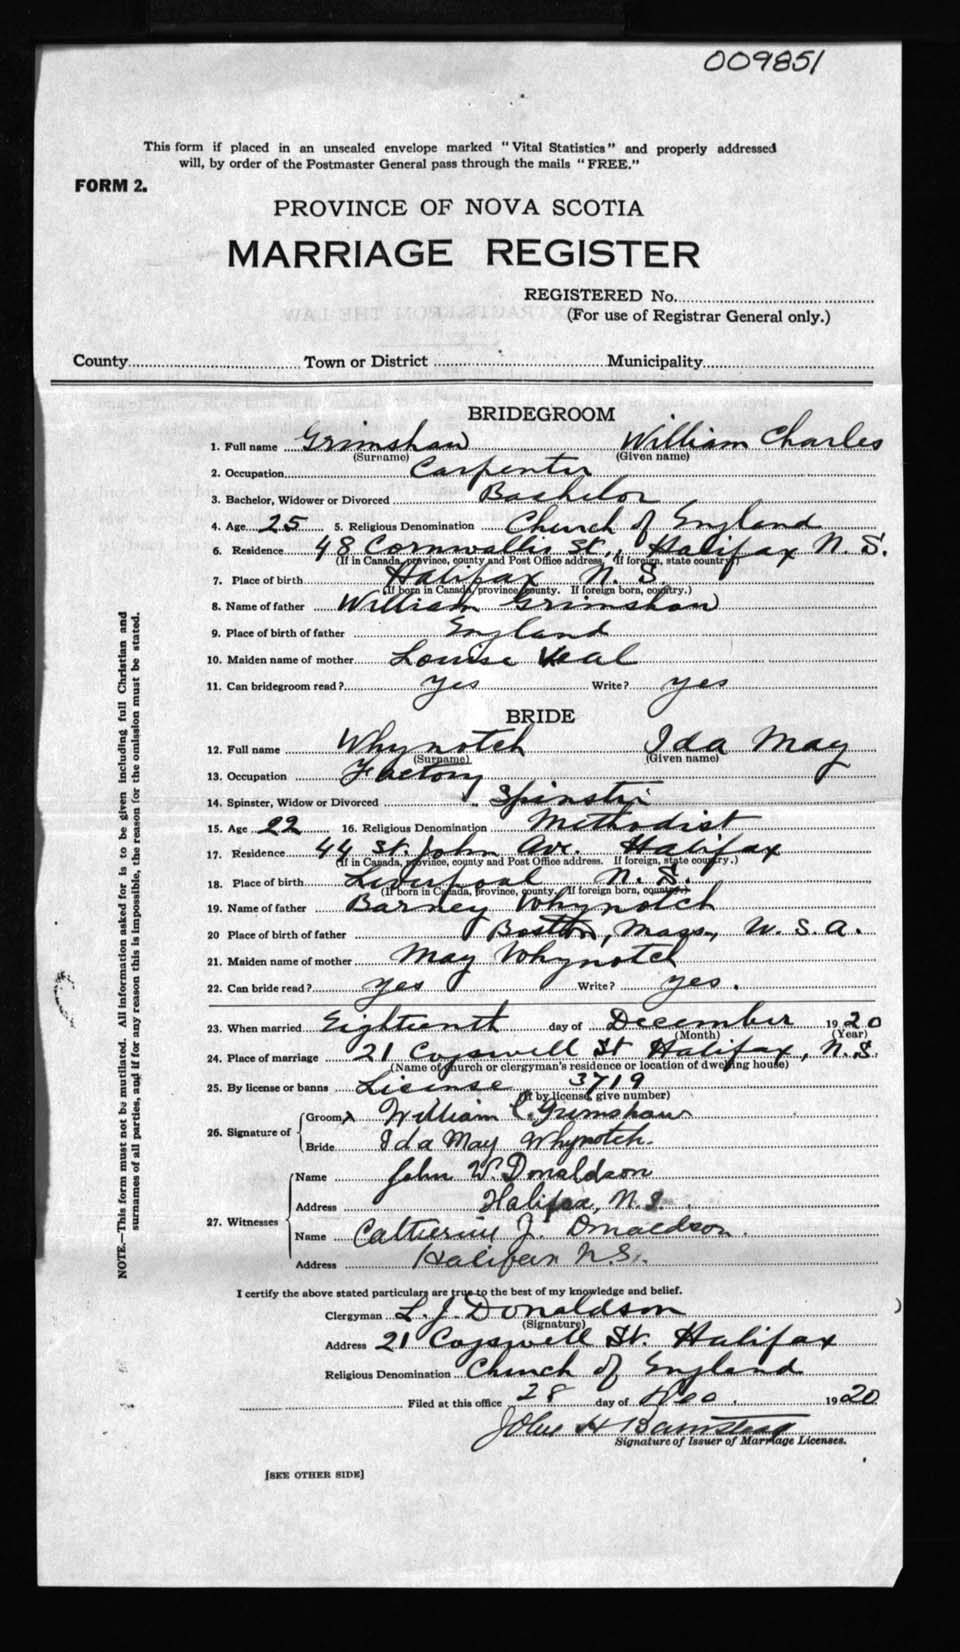 009851
This form if placed in an unsealed envelope marked "Vital Statistics" and properly addressed
will, by order of the Postmaster General pass through the mails "FREE."
FORM 2.
PROVINCE OF NOVA SCOTIA
MARRIAGE REGISTER
REGISTERED No.
(For use of Registrar General only.)
County Town or District Municipality
BRIDEGROOM
1. Full name Grimshaw William Charles
(Surname) (Given name)
2. Occupation Carpenter
3. Bachelor, Widower or Divorced Bachelor
4. Age 25 5. Religious Denomination Church of England
6. Residence 48 Cornwallis St., Halifax N.S.
(If in Canada, province, county and Post Office address. If foreign, state country.)
7. Place of birth Halifax N.S.
(If born in Canada, province, county. If foreign born, country.)
8. Name of father William Grimshaw
9. Place of birth of father England
10. Maiden name of mother Louise Veal
11. Can bridegroom read? yes Write? yes
BRIDE
12. Full name Whynotch Ida May
(Surname) (Given name)
13. Occupation Factory
14. Spinster, Widow or Divorced Spinster
15. Age 22 16. Religious Denomination Methodist
17. Residence 44 St. John Ave. Halifax
(If in Canada, province, county and Post Office address. If foreign, state country.)
18. Place of birth Liverpool N.S.
(If born in Canada, province, county. If foreign born, country.)
19. Name of father Barney Whynotch
20 Place of birth of father Boston, Mass., U.S.A.
21. Maiden name of mother May Whynotch
22. Can bride read? yes Write? yes.
23. When married Eighteenth day of December 1920
(Month) (Year)
24. Place of marriage 21 Cogswell St Halifax, N.S.
(Name of church or clergyman's residence or location of dwelling house)
25. By license or banns License 3719
(If by license, give number)
26. Signature of
Groom William C. Grimshaw
Bride Ida May Whynotch.
27. Witnesses
Name John W. Donaldson
Address Halifax, N.S.
Name Catherine J. Donaldson.
Address Halifax N.S.
I certify the above stated particulars are true to the best of my knowledge and belief.
Clergyman L. J. Donaldson
(Signature)
Address 21 Cogswell St. Halifax
Religious Denomination Church of England
Filed at this office 28 day of Dec. 1920
John H
Signature of Issuer of Marriage Licenses.
[SEE OTHER SIDE]
NOTE.—This form must not be mutilated. All information asked for is to be given including full Christian and
surnames of all parties, and if for any reason this is impossible, the reason for the omission must be stated.